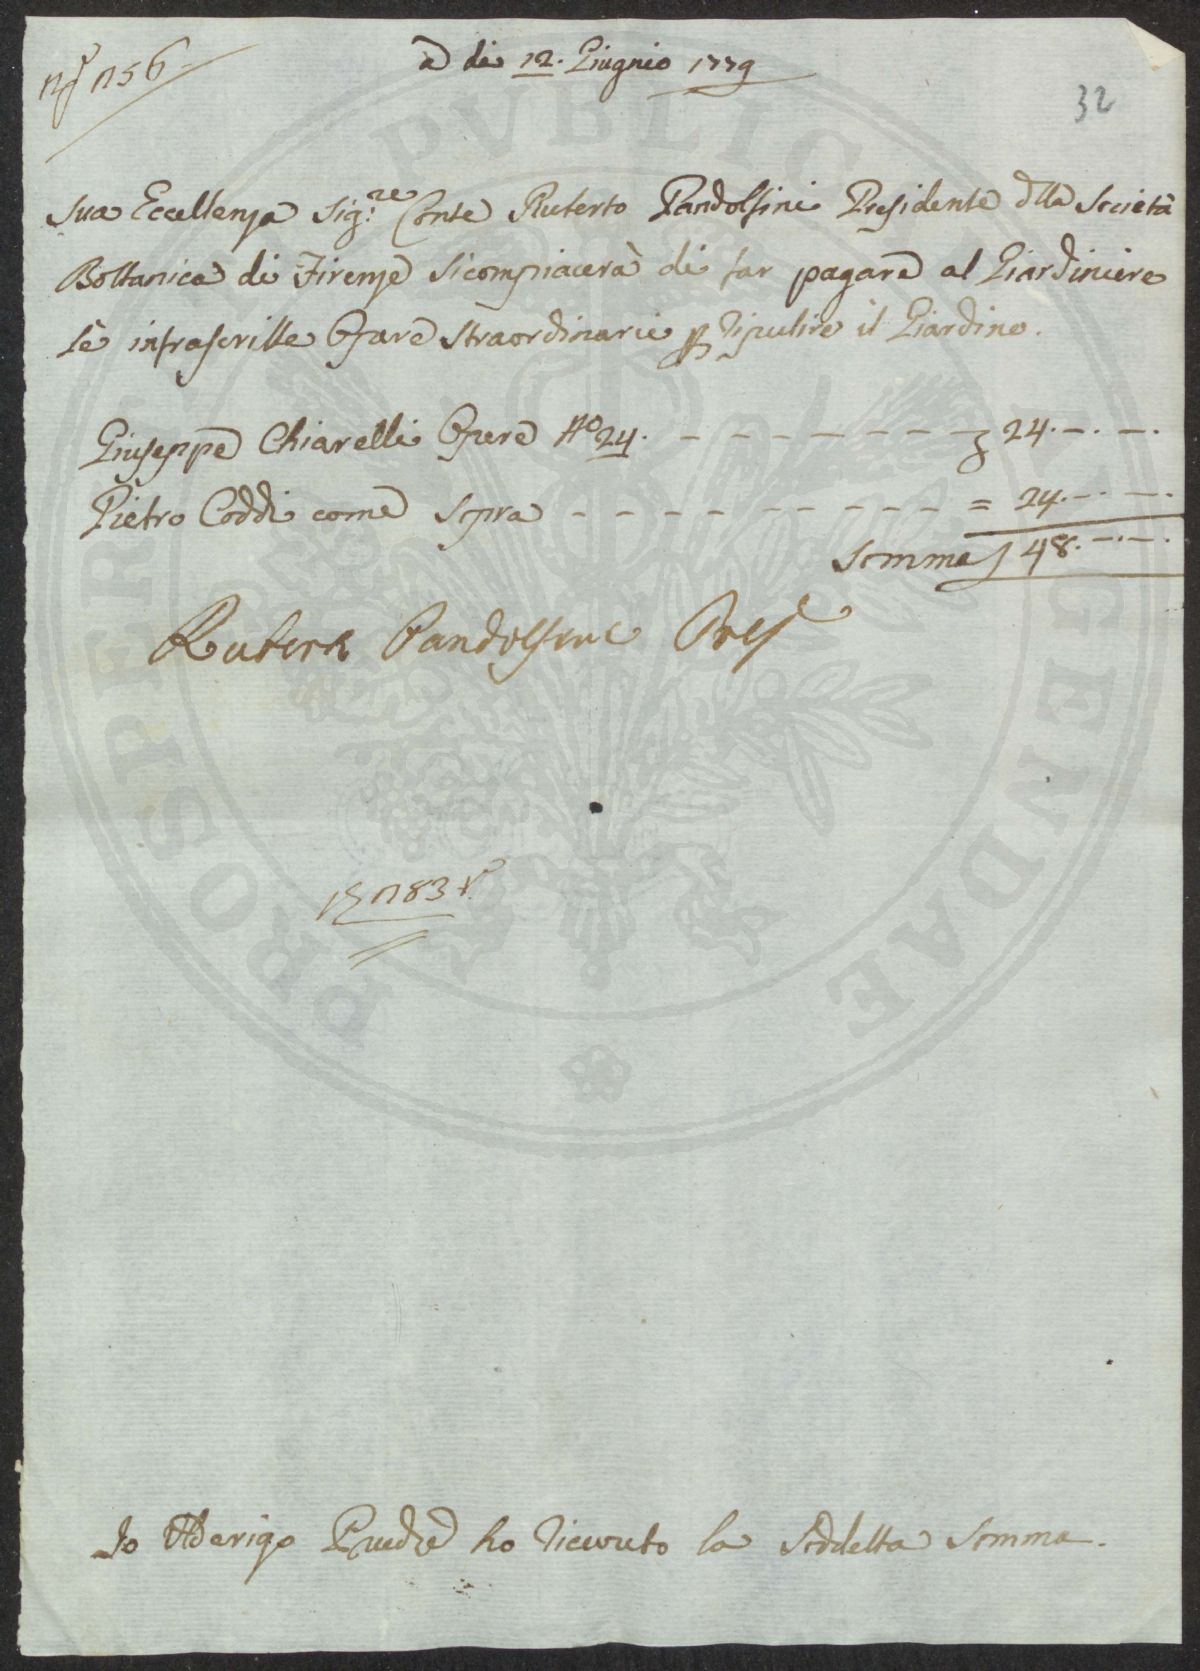 N° 156.
A di 12. Giugnio 1779
32
Sua Eccellenza Sig:re Conte Ruberto Pandolfini Presidente dlla Società
Bottanica di Firenze si compiacerà di far pagare al Giardiniere
le infrascritte Opare straordinarie p ripulire il Giardino.
Giuseppe Chiarelli Opere No 24. - - - - - - - - 24. -. -.
Pietro Coddi come sopra - - - - - - - - - - = 24. -. -.
Somma 48. -. -.
Ruberto Pandolfini Pres.e
183
Io ho ricevuto la Suddetta Somma.
PROSPERITATI PVBLICAE AVGENDAE